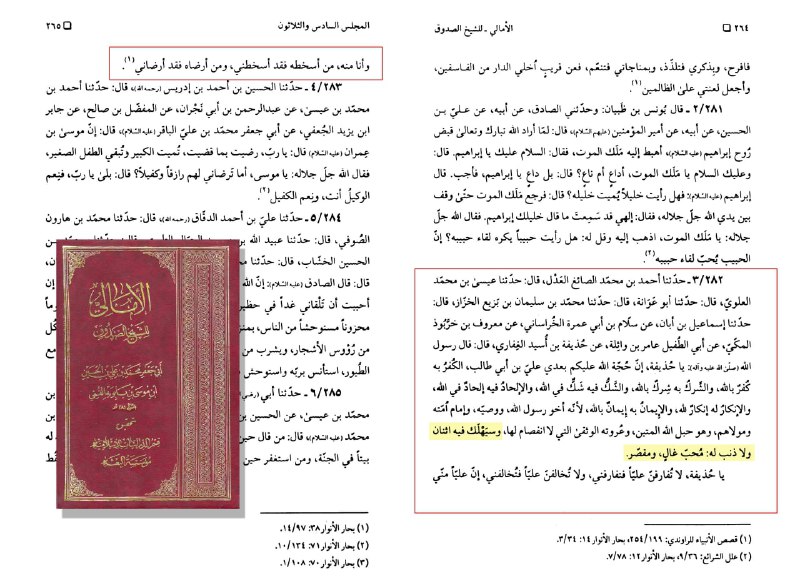 ٢٦٤ الأمالي ـ للشيخ الصدوق
فاقرح، وبذكري فتلذّذ، وبمناجاتي فتنعّم، فعن قريبٍ أخلي الدار من الفاسقين،
وأجعل لعنتي على الظالمين(١).
٢/٢٨١ ـ قال يُونس بن ظَبيان: وحدّثني الصادق، عن أبيه، عن عليّ بن
الحسين، عن أبيه، عن أمير المؤمنين (عليهم السلام)، قال: لمّا أراد الله تبارك وتعالى قبض
رُوح إبراهيم (عليه السلام)، أهبط إليه مَلَك الموت، فقال: السلام عليك يا إبراهيم. قال:
وعليك السلام يا مَلَك الموت، أداعٍ أم ناعٍ؟ قال: بل داعٍ يا إبراهيم، فأجب. قال
إبراهيم (عليه السلام): فهل رأيت خليلاً يُميت خليله؟ قال: فرجع مَلَك الموت حتّى وقف
بين يدي الله جلّ جلاله، فقال: إلهي قد سَمِعتَ ما قال خليلك إبراهيم. فقال الله جلّ
جلاله: يا مَلَك الموت، اذهب إليه وقل له: هل رأيت حبيباً يكره لقاء حبيبه؟ إنّ
الحبيب يُحبّ لقاء حبيبه(٢).
٣/٢٨٢ ـ حدّثنا أحمد بن محمد الصائغ العَدْل، قال: حدّثنا عيسى بن محمد
العلويّ، قال: حدّثنا أبو عَوَانة، قال: حدّثنا محمّد بن سليمان بن بَزيع الخزّاز، قال:
حدّثنا إسماعيل بن أبان، عن سلّام بن أبي عمرة الخُراساني، عن معروف بن خرَّبُوذ
المكّيّ، عن أبي الطُّفيل عامر بن واثِلة، عن حُذيفة بن أُسيد الغِفاري، قال: قال رسول
الله (صلى الله عليه وآله): يا حُذيفة، إنّ حُجّة الله عليكم بعدي عليّ بن أبي طالب، الكُفرُ به
كُفرٌ بالله، والشِّركُ به شِركٌ بالله، والشَّكُ فيه شَكٌ في الله، والإلحادُ فيه إلحادٌ في الله،
والإنكارُ له إنكارٌ لله، والإيمانُ به إيمانٌ بالله، لأنّه أخو رسول الله، ووصيّه، وإمام اُمّته
ومولاهم، وهو حبل الله المتين، وعُروته الوثقىٰ التي لا انفصام لها، وسيَهْلَك فيه اثنان
ولا ذنب له: مُحبّ غالٍ، ومقصّر.
يا حُذيفة، لا تُفارقنّ عليّاً فتفارقني، ولا تُخالفنّ عليّاً فتُخالفني، إنّ عليّاً منّي
(١) قصص الأنبياء للراوندي: ٢٥٤/١٩٩، بحار الأنوار ١٤: ٣/٣٤.
(٢) علل الشرائع: ٩/٣٦، بحار الأنوار ١٢: ٧/٧٨.
المجلس السادس والثلاثون ٢٦٥
وأنا منه، من أسخطه فقد أسخطني، ومن أرضاه فقد أرضاني(١).
٤/٢٨٣ ـ حدّثنا الحسين بن أحمد بن إدريس (رحمه الله)، قال: حدّثنا أحمد بن
محمّد بن عيسىٰ، عن عبدالرحمن بن أبي نَجْران، عن المفضّل بن صالح، عن جابر
ابن يزيد الجُعفي، عن أبي جعفر محمّد بن عليّ الباقر (عليه السلام)، قال: إنّ موسىٰ بن
عِمران (عليه السلام) قال: يا ربّ، رضيت بما قضيت، تُميت الكبير وتُبقي الطفل الصغير،
فقال الله جلّ جلاله: يا موسىٰ، أما تَرضاني لهم رازقاً وكفيلاً؟ قال: بلىٰ يا ربّ، فنِعم
الوكيلُ أنت، ونِعم الكفيل(٢).
٥/٢٨٤ ـ حدّثنا عليّ بن أحمد الدقّاق (رحمه الله)، قال: حدّثنا محمّد بن هارون
الصُّوفي، قال: حدّثنا عبيد الله بن
الحسين الخشّاب، قال: حدّثنا محمّد
قال: قال الصادق (عليه السلام): إنّ الله
أحببت أن تَلْقاني غداً في حظير
محزوناً مستوحشاً من الناس، بمنز
من رُؤوس الأشجار، ويشرب من
الطُّيور، استأنس بربّه واستوحش
٦/٢٨٥ ـ حدّثنا أبي
محمّد بن عيسىٰ، عن الحسين بن
(عليه السلام) قال: من قال حين
بيتاً في الجنّة، ومن استغفر حين
(١) بحار الأنوار ٣٨: ١٤/٩٧.
(٢) بحار الأنوار ٧١: ١٠/١٣٤.
(٣) بحار الأنوار ٧٠: ١/١٠٨.
الأمالي
للشيخ الصدوق
أبي جعفر محمد بن علي بن الحسين
ابن موسى بن بابويه القمي